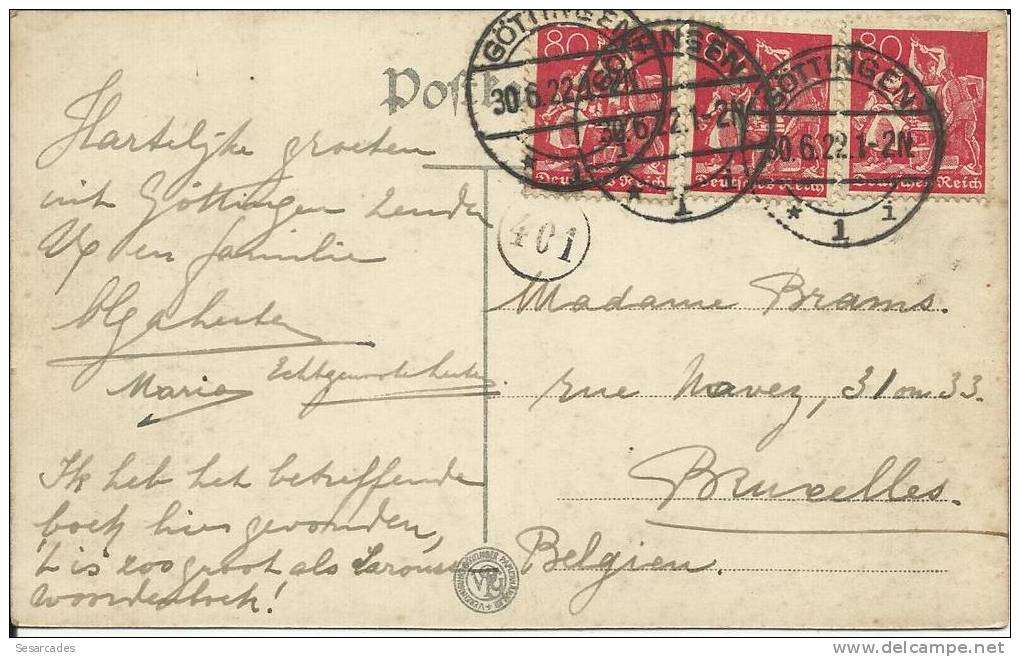 Postk
GÖTTINGEN
30.6.22.1-2N
* 1 i
GÖTTINGEN
30.6.22.1-2N
* 1 i
GÖTTINGEN
30.6.22.1-2N
* 1 i
80
80
80
Deutsches Reich
Deutsches Reich
Deutsches Reich
401
Hartelijke groeten
uit Göttingen zenden
U en familie
Maria
Ik heb het betreffende
boek hier gevonden,
't is zoo groot als Larousse
woordenboek!
Madame Brams.
rue Navez, 31 ou 33.
Bruxelles.
Belgien.
Sesarcades
delcampe.net